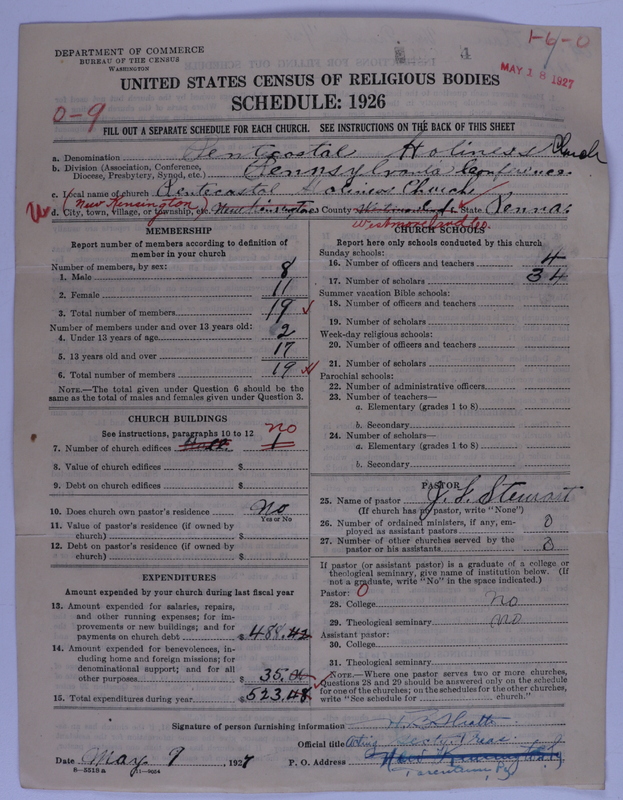 1-6-0
DEPARTMENT OF COMMERCE
BUREAU OF THE CENSUS
WASHINGTON
MAY 18 1927
UNITED STATES CENSUS OF RELIGIOUS BODIES
SCHEDULE: 1926
0-9
FILL OUT A SEPARATE SCHEDULE FOR EACH CHURCH. SEE INSTRUCTIONS ON THE BACK OF THIS SHEET
a. Denomination Pentecostal Holiness Church
b. Division (Association, Conference, Diocese, Presbytery, Synod, etc.) Pennsylvania Conference
c. Local name of church Pentecostal Holiness Church
(New Kensington)
d. City, town, village, or township, etc. New Kensington County State Penna.
Westmoreland Co.
MEMBERSHIP
Report number of members according to definition of
member in your church
Number of members, by sex:
1. Male 8
2. Female 11
3. Total number of members 19
Number of members under and over 13 years old:
4. Under 13 years of age 2
5. 13 years old and over 17
6. Total number of members 19
NOTE.—The total given under Question 6 should be the
same as the total of males and females given under Question 3.
CHURCH BUILDINGS
See instructions, paragraphs 10 to 12 no
7. Number of church edifices 1
8. Value of church edifices $
9. Debt on church edifices $
10. Does church own pastor's residence No
Yes or No
11. Value of pastor's residence (if owned by
church) $
12. Debt on pastor's residence (if owned by
church) $
EXPENDITURES
Amount expended by your church during last fiscal year
13. Amount expended for salaries, repairs,
and other running expenses; for im-
provements or new buildings; and for
payments on church debt $ 488.42
14. Amount expended for benevolences, in-
cluding home and foreign missions; for
denominational support; and for all
other purposes $ 35.
15. Total expenditures during year $ 523.48
CHURCH SCHOOLS
Report here only schools conducted by this church
Sunday schools:
16. Number of officers and teachers 4
17. Number of scholars 34
Summer vacation Bible schools:
18. Number of officers and teachers
19. Number of scholars
Week-day religious schools:
20. Number of officers and teachers
21. Number of scholars
Parochial schools:
22. Number of administrative officers
23. Number of teachers—
a. Elementary (grades 1 to 8)
b. Secondary
24. Number of scholars—
a. Elementary (grades 1 to 8)
b. Secondary
PASTOR
25. Name of pastor J. F. Stewart
(If church has no pastor, write "None")
26. Number of ordained ministers, if any, em-
ployed as assistant pastors 0
27. Number of other churches served by the
pastor or his assistants 0
If pastor (or assistant pastor) is a graduate of a college or
theological seminary, give name of institution below. (If
not a graduate, write "No" in the space indicated.)
Pastor: 0
28. College no
29. Theological seminary no
Assistant pastor:
30. College
31. Theological seminary
NOTE.—Where one pastor serves two or more churches,
Questions 28 and 29 should be answered only on the schedule
for one of the churches; on the schedules for the other churches,
write "See schedule for church."
Signature of person furnishing information
Official title Acting Secty & Treas.
Date May 9, 1927 P. O. Address New Kensington Pa
8—5518 a 11—9054 Tarentum, Pa